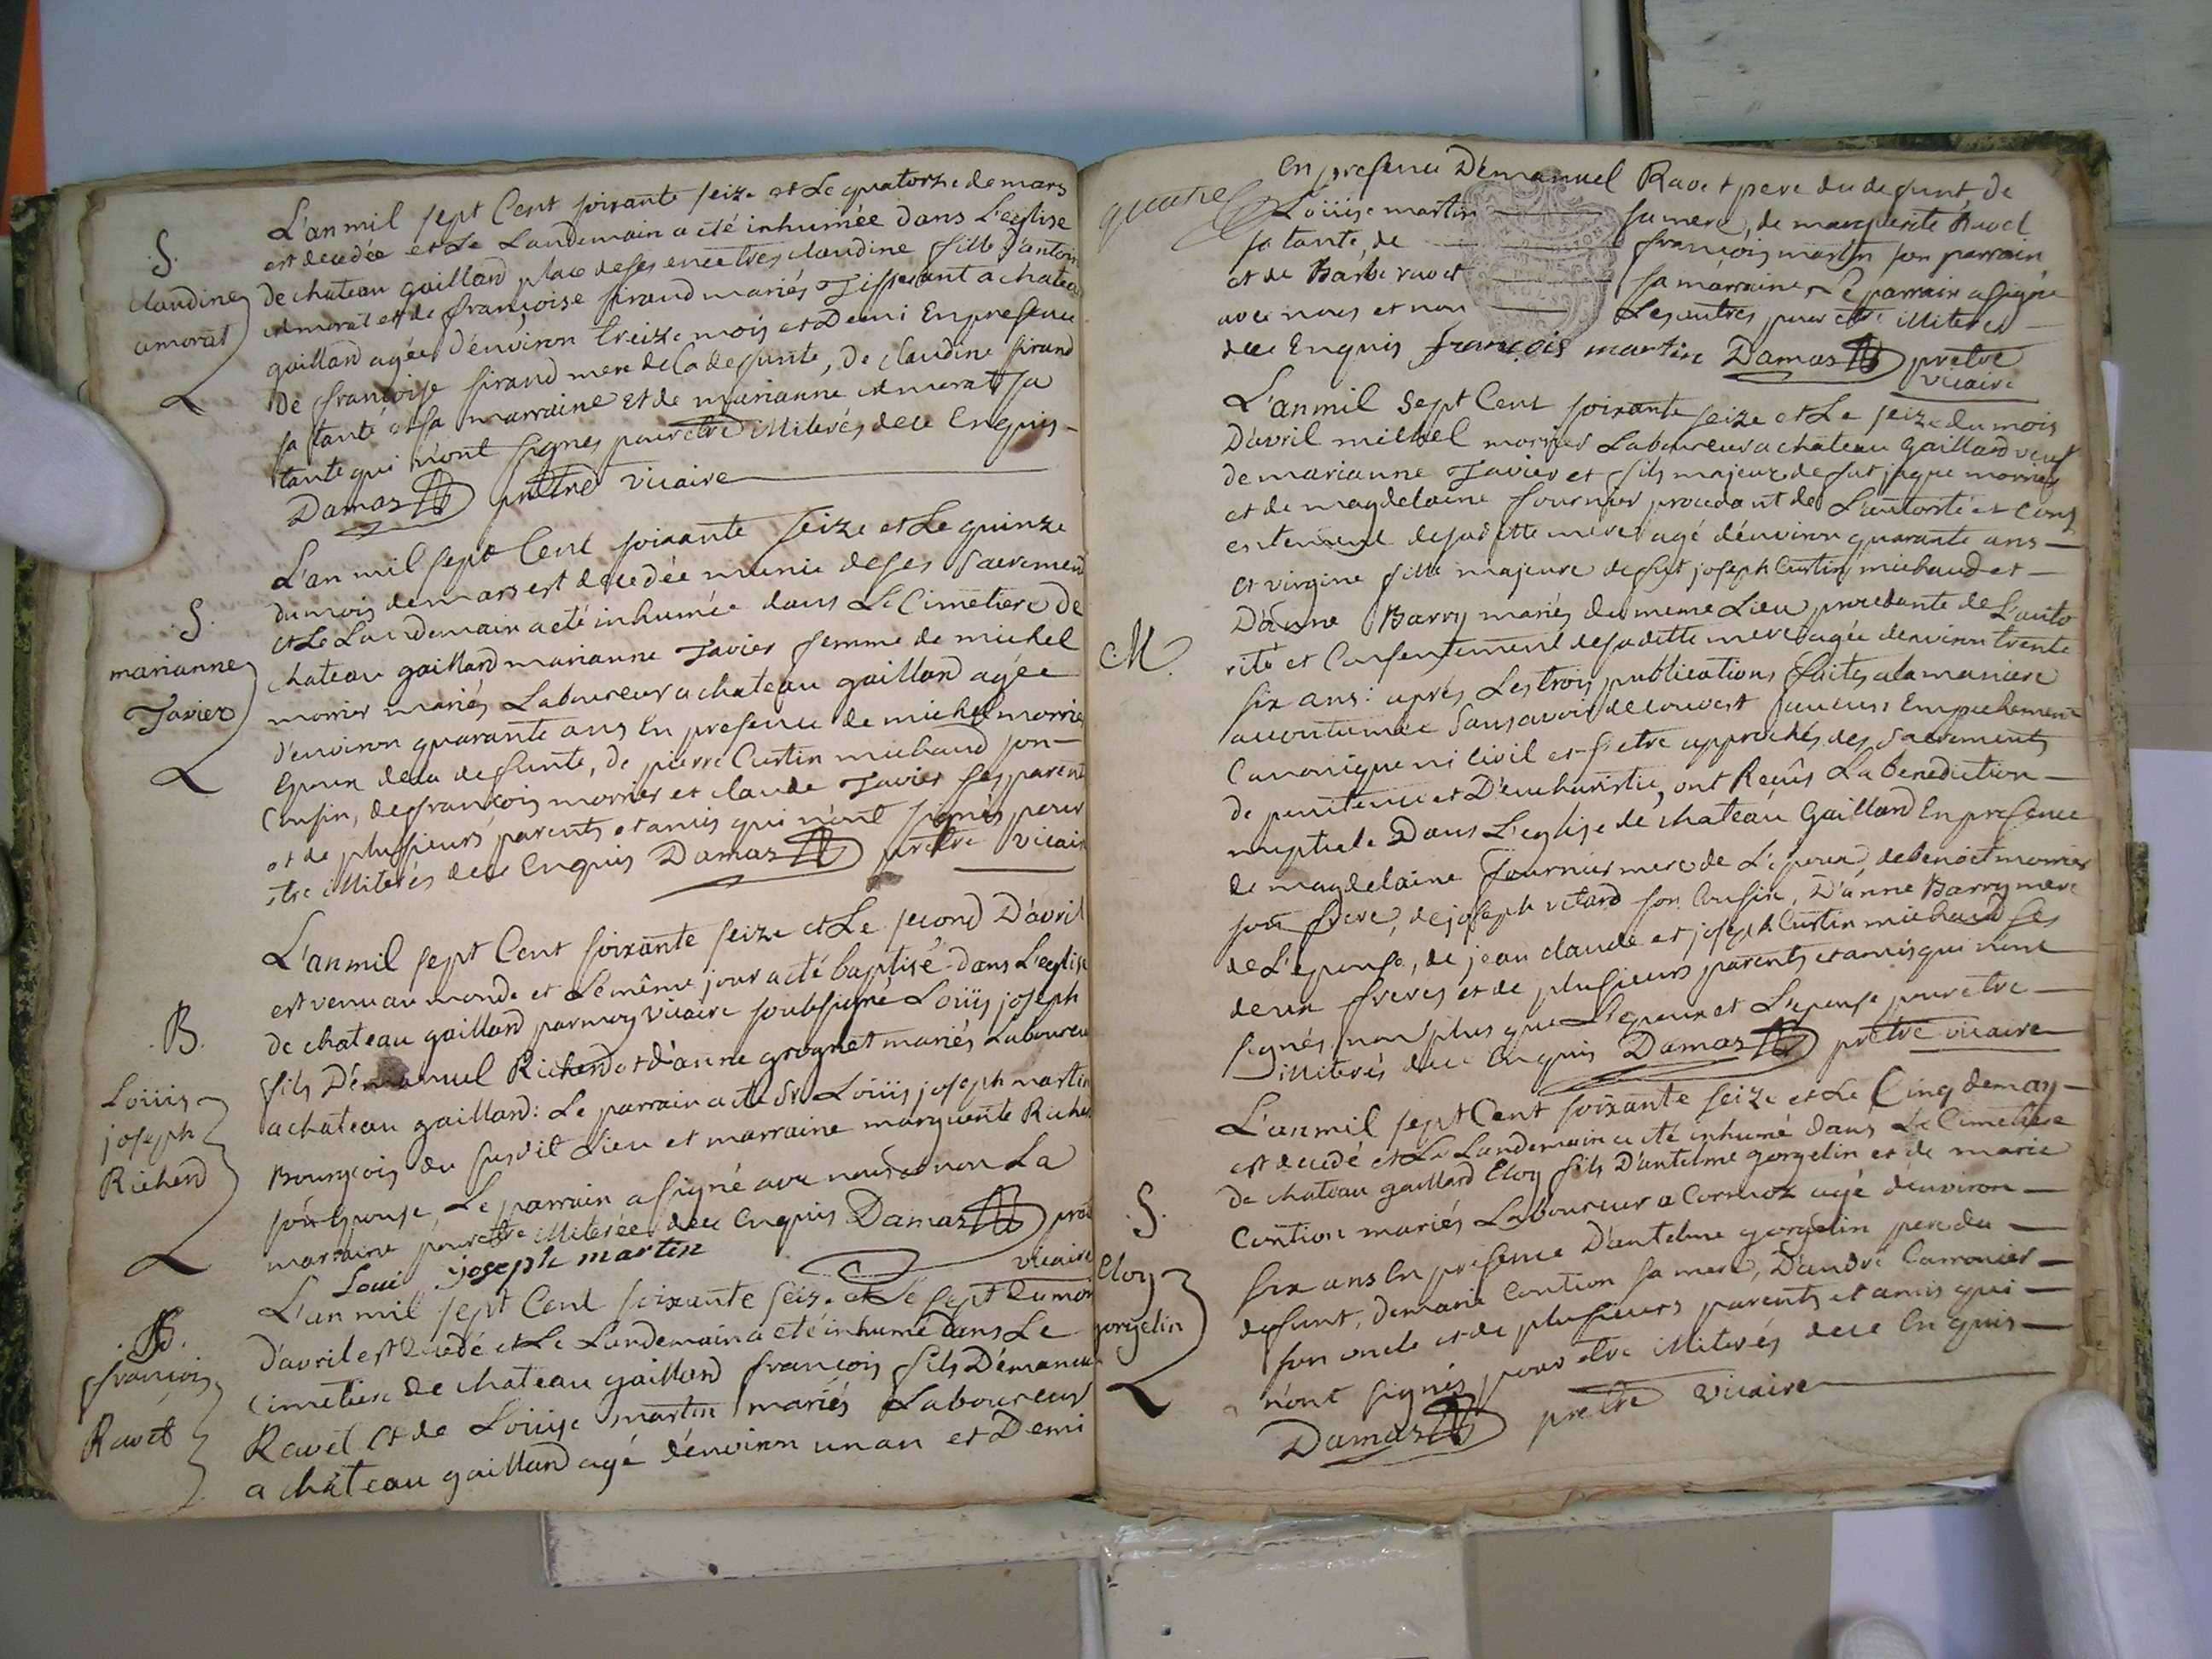 S.
claudine
amorat
L'an mil sept Cent soixante seize et Le quatorze de mars
est decedée et Le Landemain a eté inhumée dans L'eglise
de chateau gaillard place de ses encetres claudine fille d'antoin
amorat et de françoise sirand mariés Tisserant a chateau
gaillard agée d'environ treize mois et Demi En presence
De françoise sirand mere de la defunte, de claudine sirand
sa tante et sa marraine et de marianne amorat sa
tante qui n'ont signes pour etre illiterés de ce Enquis -
Damas prêtre vicaire
S.
marianne
Tavier
L'an mil sept Cent soixante seize et Le quinze
du mois de mars est decedée munie de ses sacremens
et Le Landemain a eté inhumée dans Le Cimetiere de
chateau gaillard marianne Tavier femme de michel
morrier mariés Laboureur a chateau gaillard agée
d'environ quarante ans En presence de michel morrie
Epoux de la defunte, de pierre Curtin michaud son -
Cousin, de françois morrier et claude Tavier ses parents
et de plusieurs parents et amis qui n'ont signés pour
etre illiterés de ce Enquis Damas prêtre vicair
B.
Loüis
joseph
Richerd
L'an mil sept Cent soixante seize et Le second D'avril
est venu au monde et Le même jour a eté baptisé dans L'eglise
de chateau gaillard par moy vicaire soubsigné Loüis joseph
fils D'émanuel Richerd et d'anne grognet mariés Laboureur
a chateau gaillard: Le parrain a eté Sr Loüis joseph martin
Bourgeois du susdit Lieu et marraine marguerite Richer
son epouse, Le parrain a signé avec nous et non La
marraine pour etre illiterée de ce Enquis Damas prêt
Loui joseph martin vicaire
S.
françois
Ravet
L'an mil sept Cent soixante seize et Le sept du mois
D'avril est decedé et Le Landemain a eté inhumé dans Le
Cimetiere de chateau gaillard françois fils D'émanuel
Ravet et de Loüise martin mariés Laboureur
a château gaillard agé d'environ un an et Demi
quatre
En presence D'emanuel Ravet pere du defunt, de
Loüise martin sa mere, de marguerite Ravet
sa tante, de françois martin son parrain
et de Barbe ravet sa marraine, Le parrain a signé
avec nous et non Les autres pour etre illiterés
de ce Enquis françois martin Damas prêtre
vicaire
M.
L'an mil sept Cent soixante seize et Le seize du mois
D'avril michel morrier Laboureur a chateau gaillard veuf
de marianne Tavier et fils majeur de fut jaque morrier
et de magdelaine fournier procedant de L'autorité et cons
entement de sa ditte mere agé d'environ quarante ans -
et virgine fille majeure de fut joseph Curtin michaud et -
D'anne Barry mariés du meme Lieu procedante de L'auto
rité et Consentement de sa ditte mere agée d'environ trente
six ans: aprés Les trois publications faites a la maniere
accoutumée sans avoir decouvert aucuns Empechement
Canonique ni civil et s'etre approchés des sacrements
de penitence et D'eucharistie, ont Reçûs La benediction -
nuptiale Dans L'eglise de chateau Gaillard En presence
de magdelaine fournier mere de L'epoux, de benoit morrier
son frere, de joseph vetard son Cousin, D'anne Barry mere
de L'epouse, de jean claude et joseph Curtin michaud ses
deux freres et de plusieurs parents et amis qui n'ont
signés, non plus que L'epoux et L'epouse pour etre -
illiterés de ce Enquis Damas prêtre vicaire
S.
Eloy
gorgelin
L'an mil sept Cent soixante seize et Le Cinq de may -
est decedé et Le Landemain a eté inhumé dans Le Cimetiere
de chateau gaillard Eloy fils D'antelme gorgelin et de marie
Contion mariés Laboureur a Cormoz agé d'environ -
six ans En presence D'antelme gorgelin pere du -
defunt, de marie Contion sa mere, D'andré Carronier -
son oncle et de plusieurs parents et amis qui -
n'ont signés pour etre illiterés de ce Enquis -
Damas prêtre vicaire